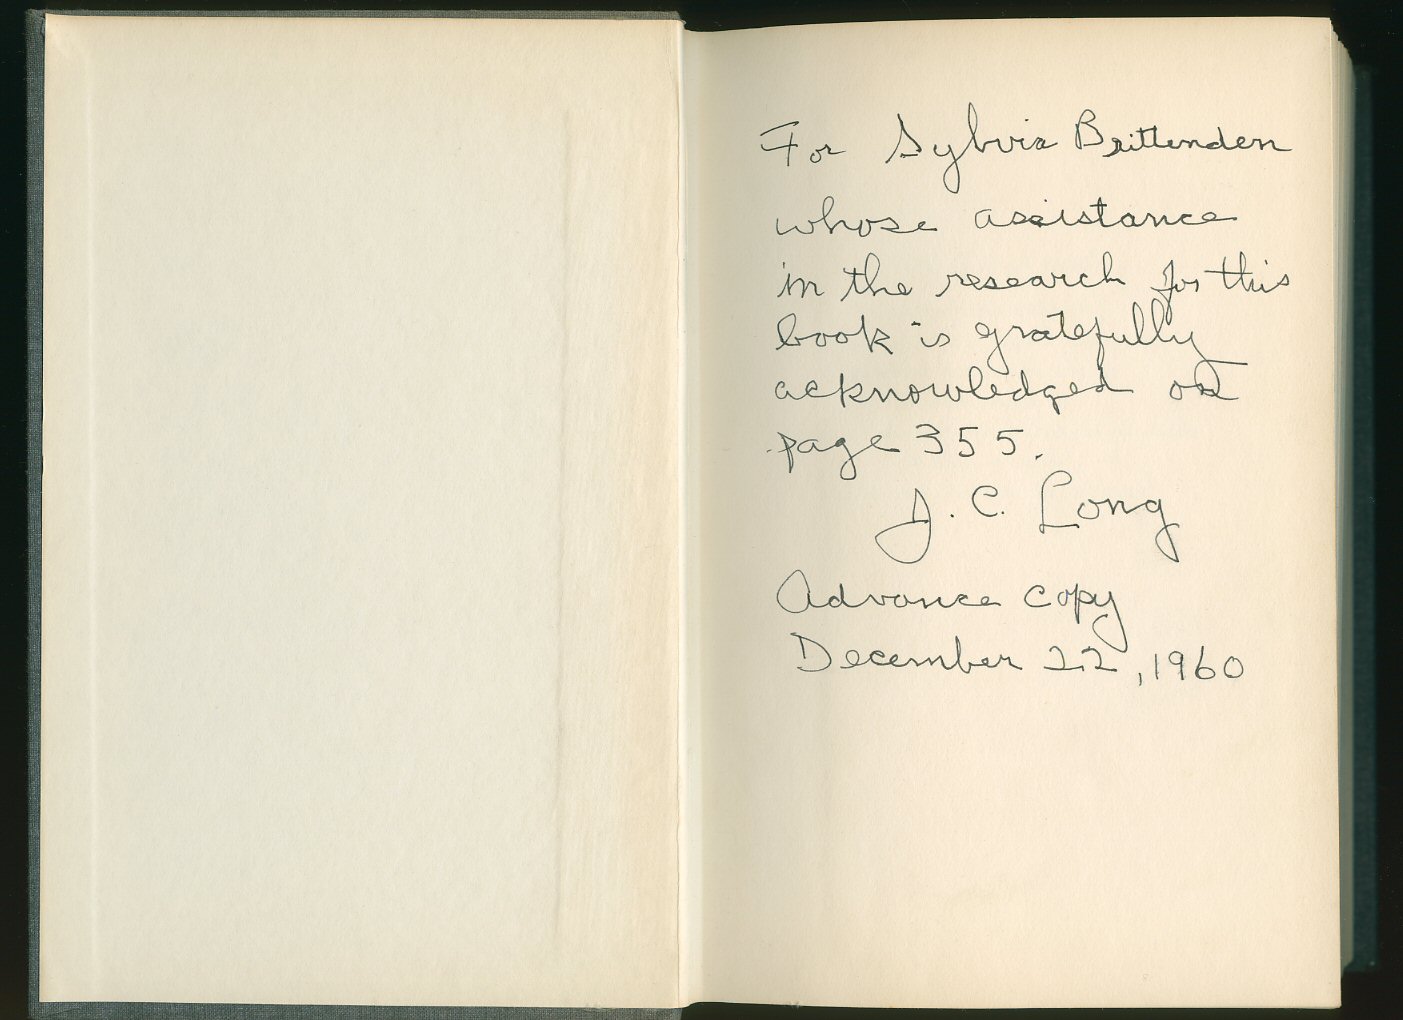 For Sylvia Brittenden
whose assistance
in the research for this
book is gratefully
acknowledged on
page 355.
J. C. Long
Advance copy
December 22, 1960